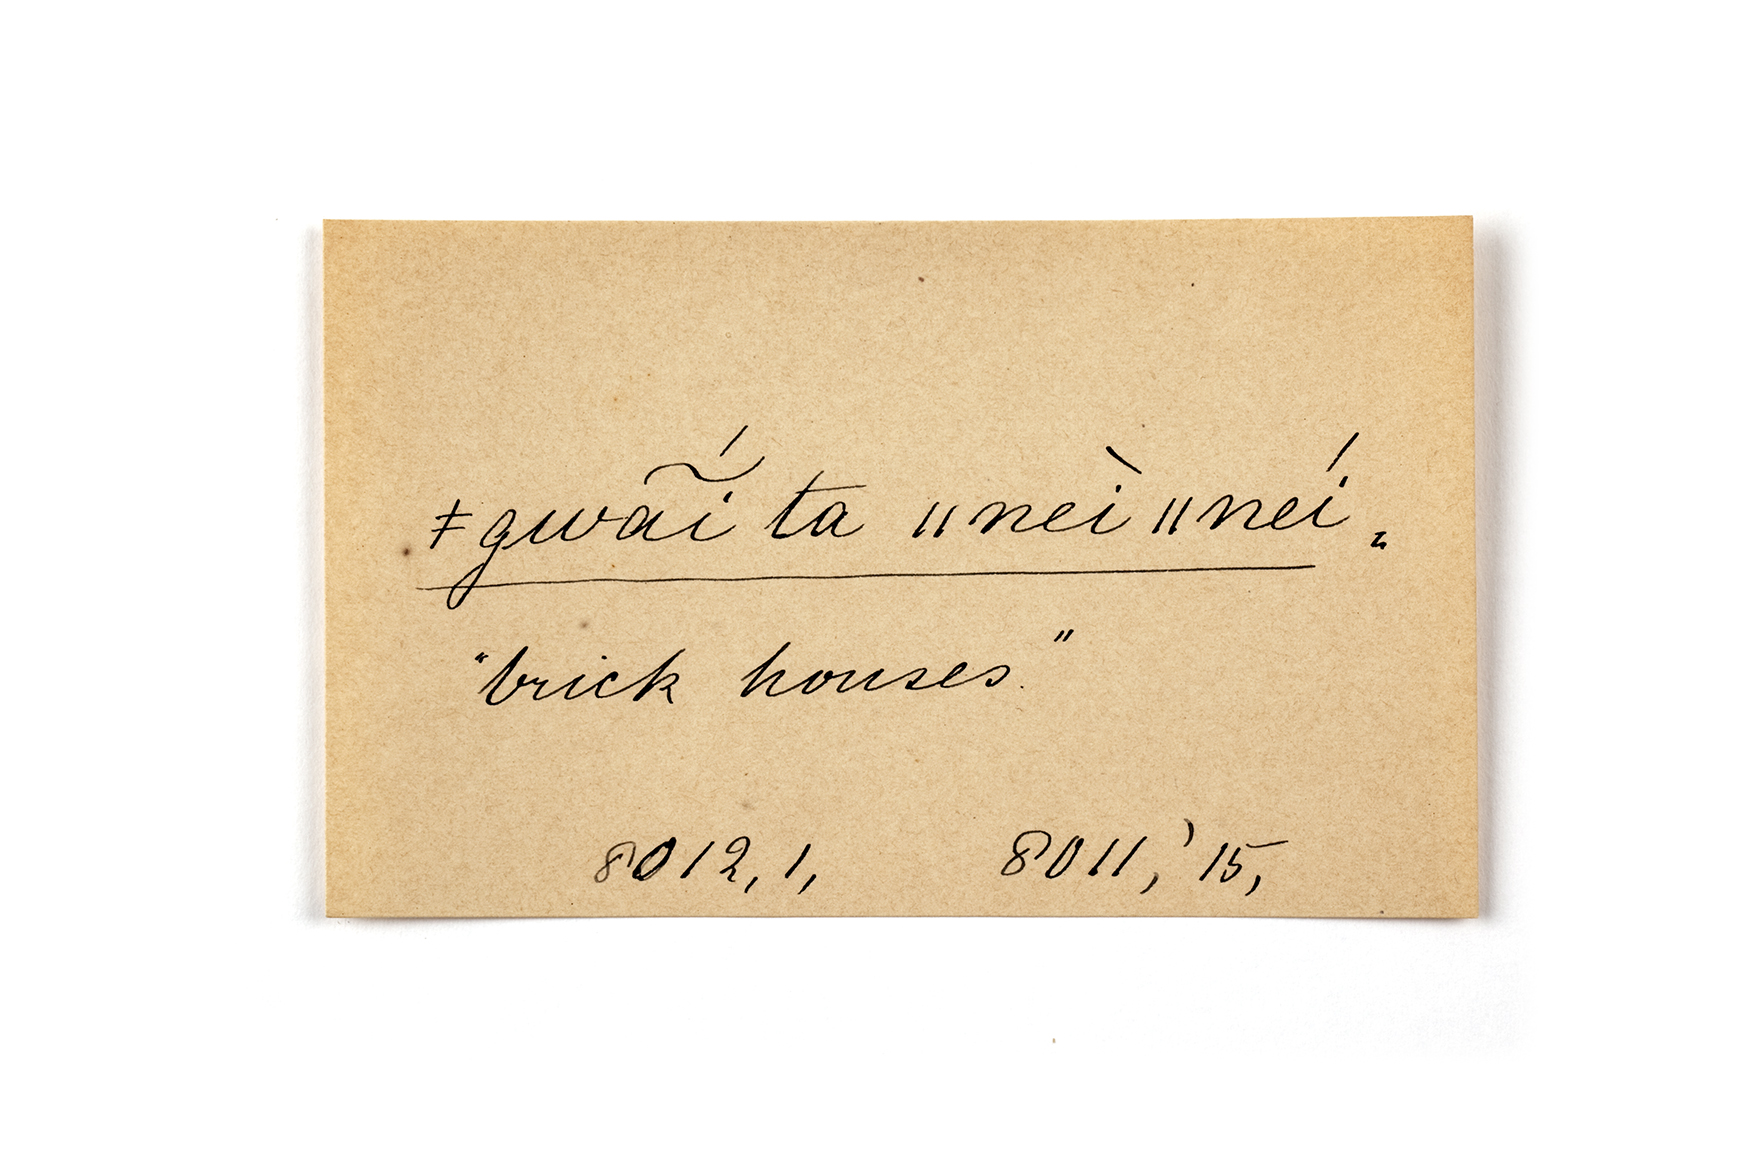 ǂgwã́ĩ ta ǁneì ǁneí „
"brick houses."
8012, 1, 8011,' 15,